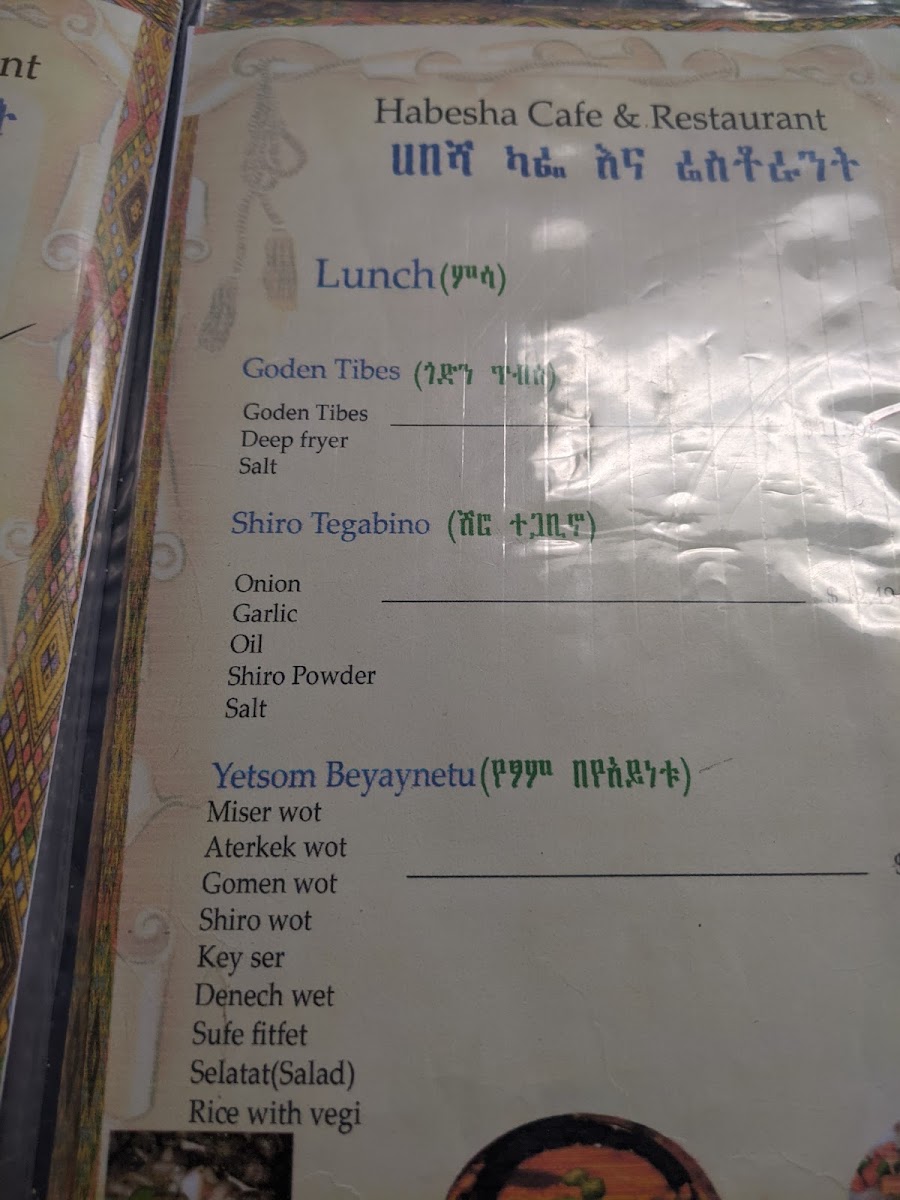 nt
ት
Habesha Cafe & Restaurant
ሀበሻ ካፌ እና ሬስቶራንት
Lunch(ምሳ)
Goden Tibes (ጎድን ጥብስ)
Goden Tibes
Deep fryer
Salt
Shiro Tegabino (ሽሮ ተጋቢኖ)
Onion
Garlic
Oil
Shiro Powder
Salt
Yetsom Beyaynetu(የፃም በየአይነቱ)
Miser wot
Aterkek wot
Gomen wot
Shiro wot
Key ser
Denech wet
Sufe fitfet
Selatat(Salad)
Rice with vegi